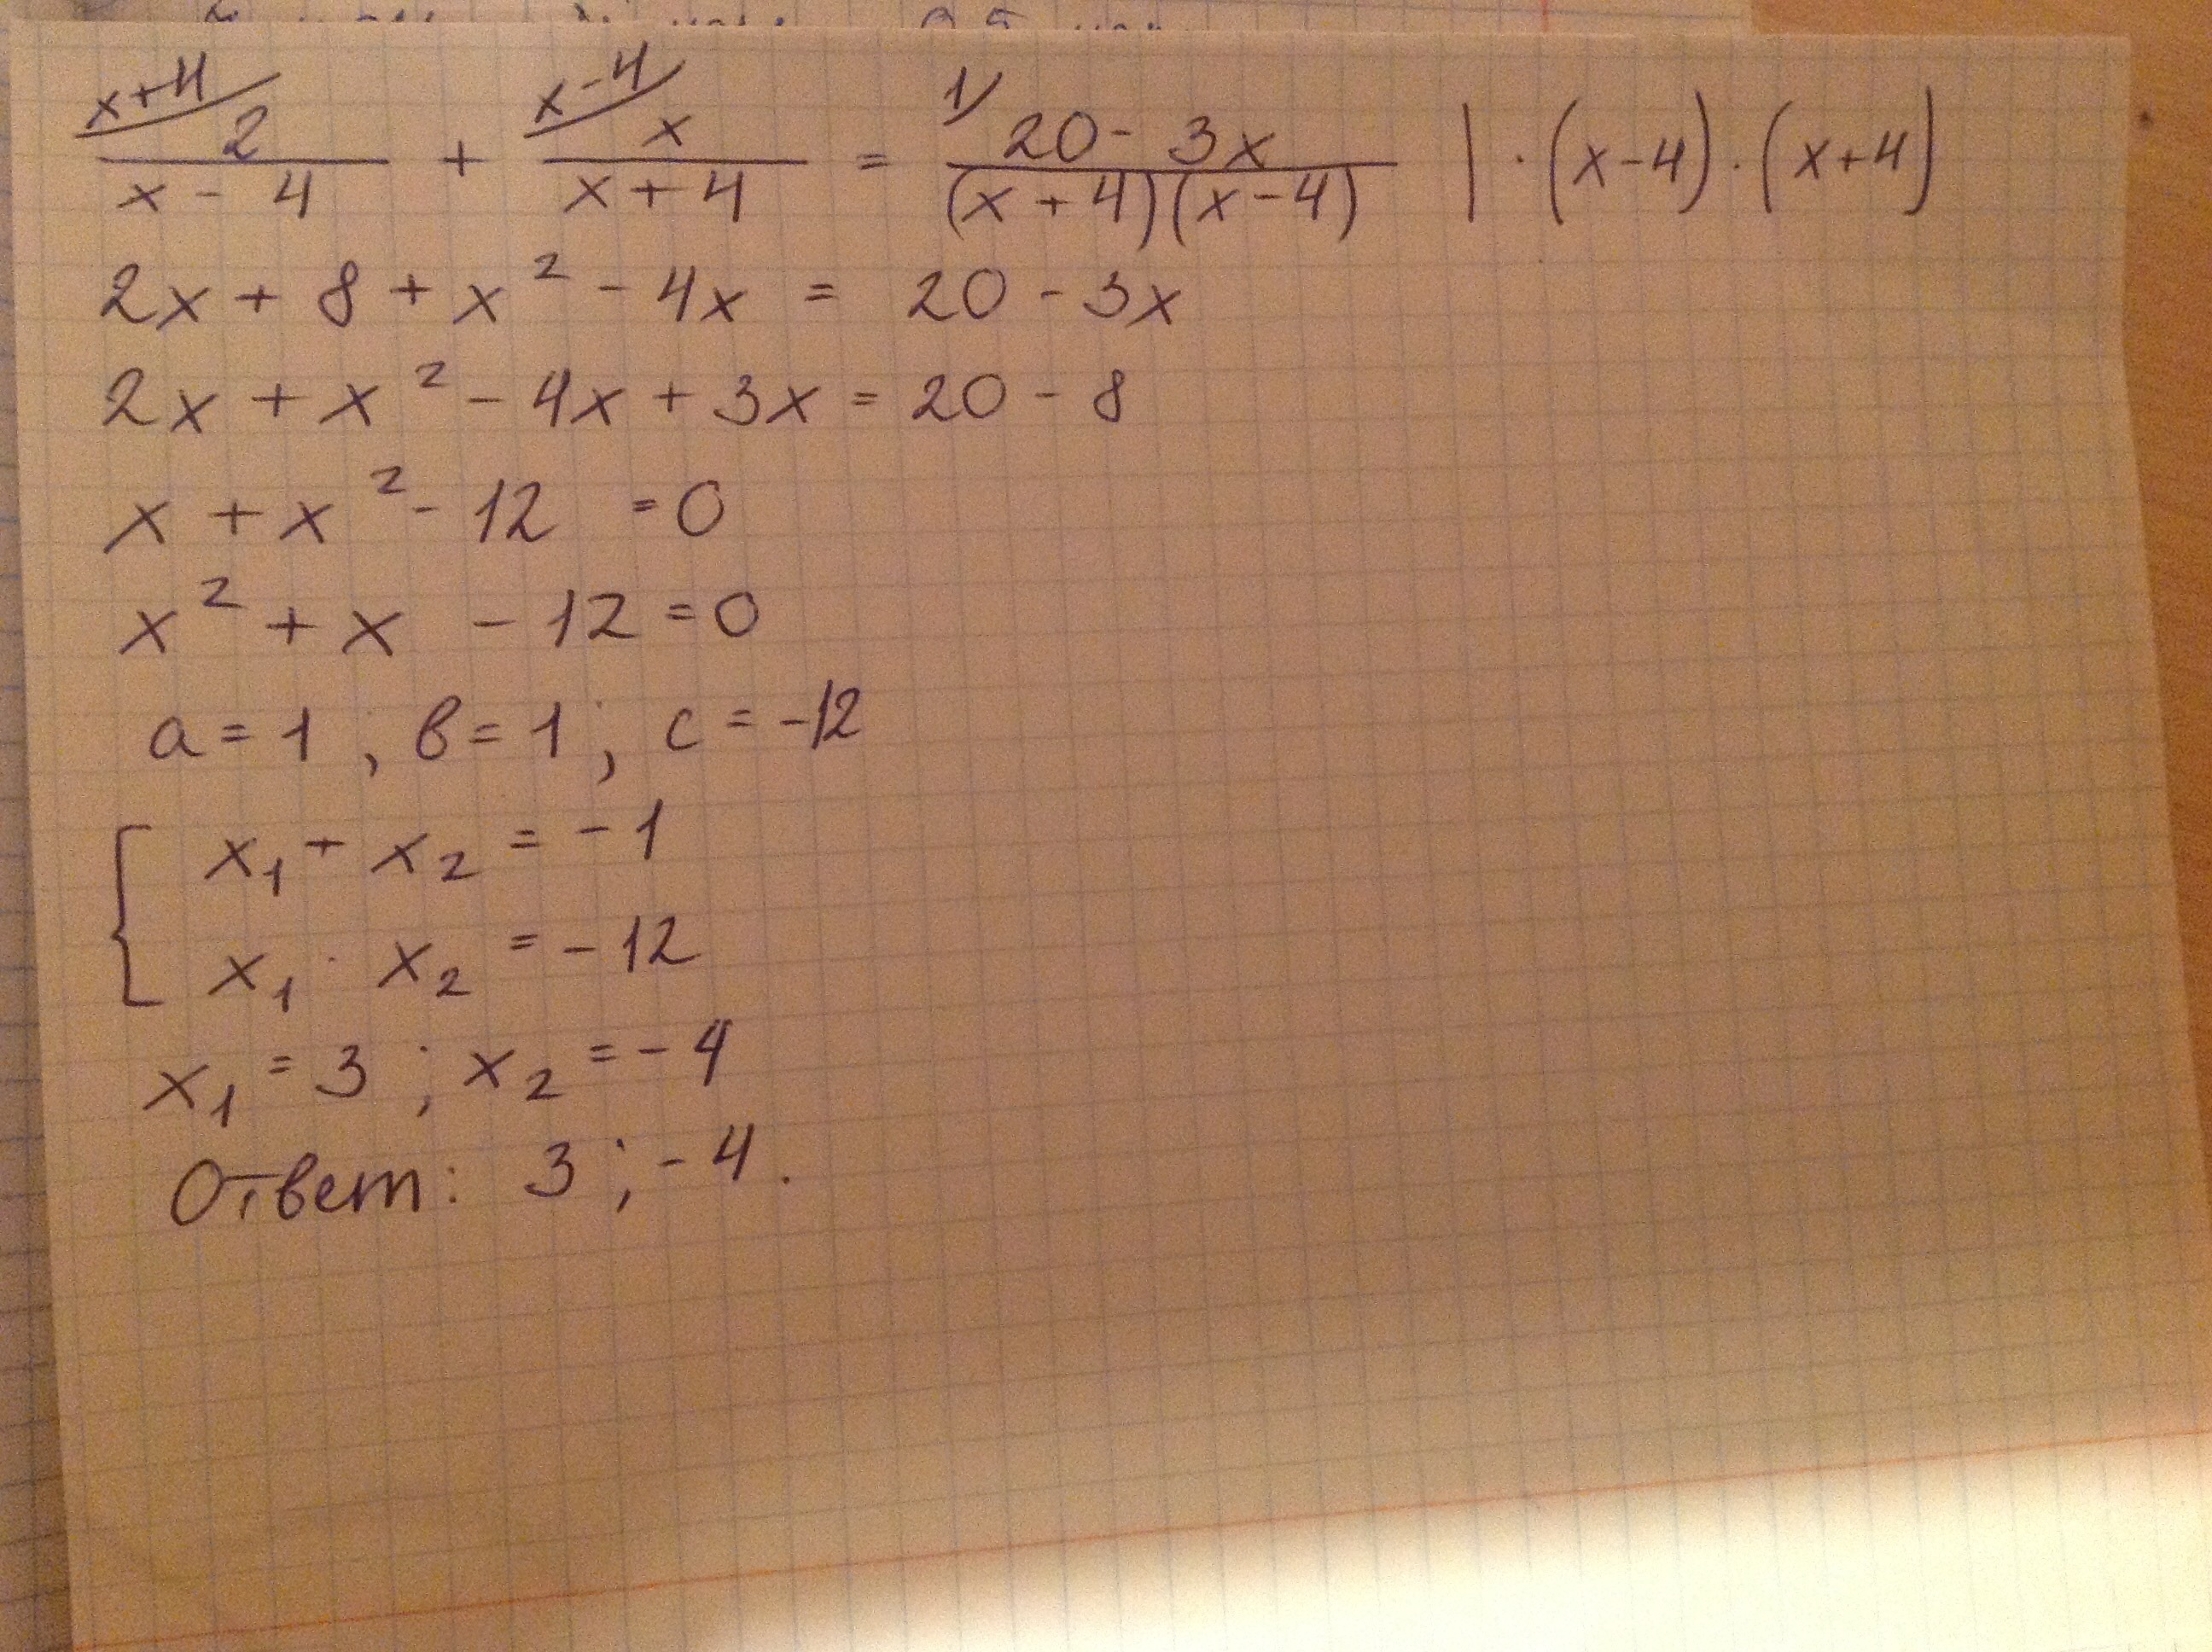 x+4/ 2 / x - 4 + x-4/ x / x + 4 = 1/ 20 - 3x / (x + 4)(x - 4) | · (x-4) · (x+4)
2x + 8 + x² - 4x = 20 - 3x
2x + x² - 4x + 3x = 20 - 8
x + x² - 12 = 0
x² + x - 12 = 0
a = 1 ; в = 1 ; c = -12
{ x₁ + x₂ = -1
x₁ · x₂ = -12
x₁ = 3 ; x₂ = -4
Ответ: 3 ; -4.